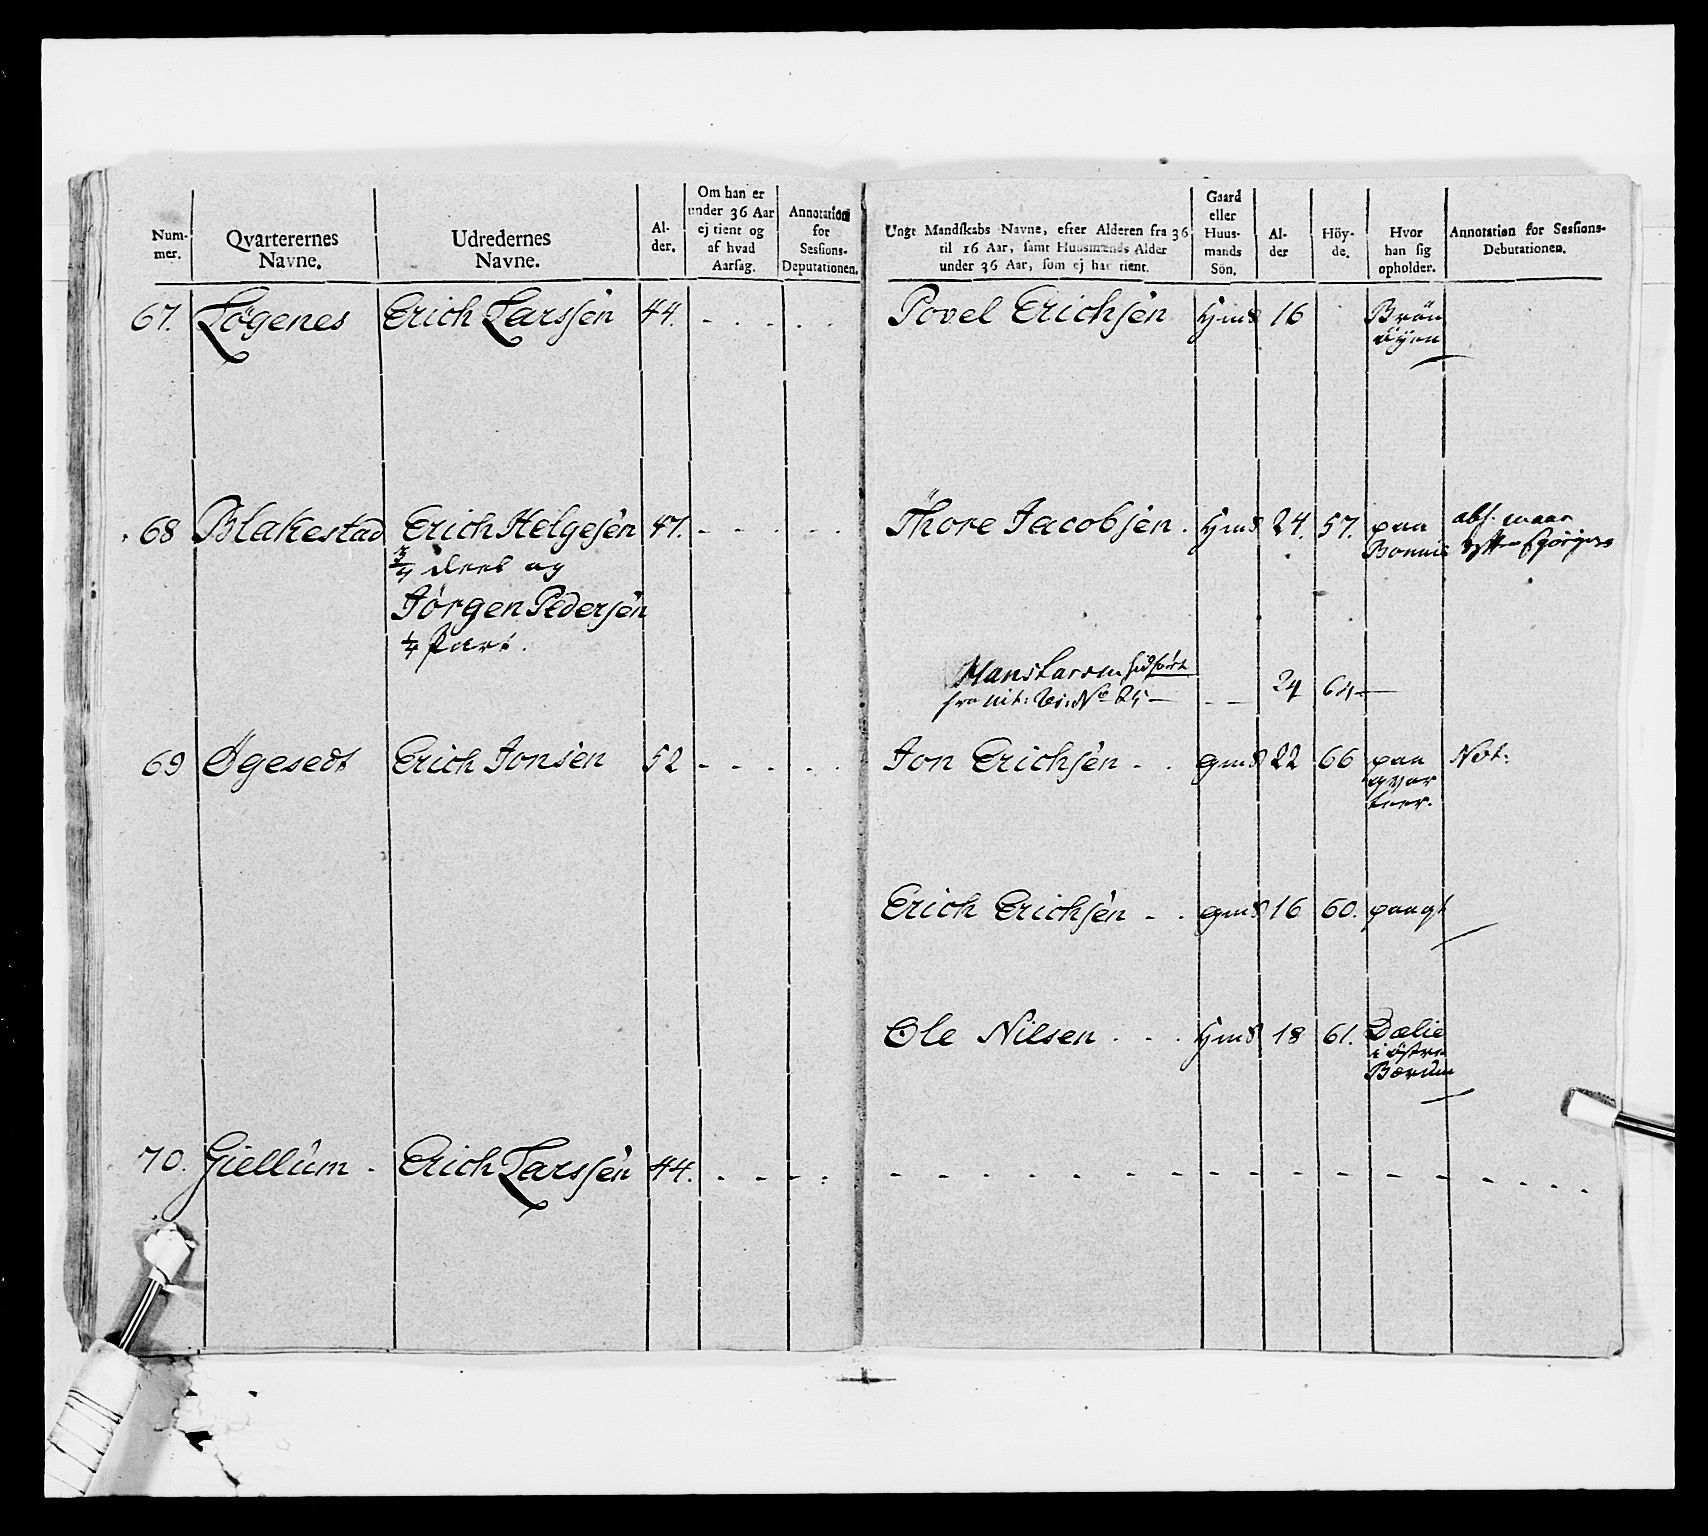 Num-
mer.
Qvarterernes
Navne.
Udredernes
Navne.
Al-
der.
Om han er
under 36 Aar
ej tient og
af hvad
Aarsag.
Annotation
for
Sessions-
Deputationen.
Ungt Mandskabs Navne, efter Alderen fra 36
til 16 Aar, samt Huusmænds Alder
under 36 Aar, som ej har tient.
Gaard
eller
Huus-
mands
Sön.
Al-
der
Höy-
de.
Hvor
han sig
opholder.
Annotation for Sessions-
Debutationen.
67. Løgenes Erich Larssen 44. - . - . . Povel Erichsen Hms 16 Brön
öyen
68 Blakestad Erich Helgesen 47. - - - - . Thore Jacobsen . Hms 24. 57. paa
Bonnie
abs. maae
3/4 deel og
Jørgen Pedersen
1/4 Part.
Hans Larsen hidført
fra No 24 - - - 24 64 -
69 Øgesedt Erich Jonsen 52 - - - . . Jon Erichsen - . gms 22 66 paa
qvar
teer.
Not:
Erich Erichsen - . gms 16 60. paa qt
Ole Nilsen . . . Hms 18 61. Dælie
i östre
Bærum
70. Giellum - Erich Larssen 44. - - - :